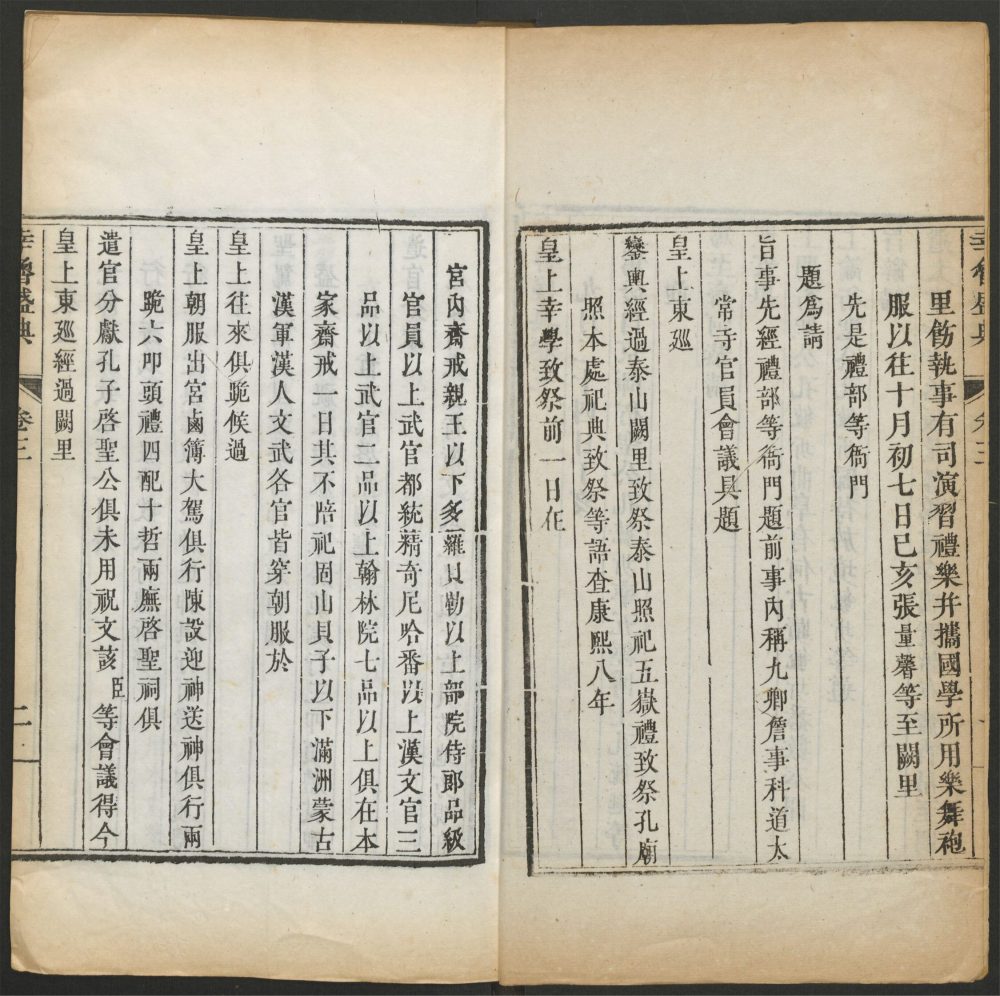 里飭執事有司演習禮樂并攜國學所用樂舞袍
服以往十月初七日己亥張量馨等至闕里
先是禮部等衙門
題爲請
旨事先經禮部等衙門題前事內稱九卿詹事科道太
常寺官員會議具題
皇上東廵
鑾輿經過泰山闕里致祭泰山照祀五嶽禮致祭孔廟
照本處祀典致祭等語查康熙八年
皇上幸學致祭前一日在
宮內齋戒親王以下多羅貝勒以上部院侍郎品級
官員以上武官都統精奇尼哈番以上漢文官三
品以上武官二品以上翰林院七品以上俱在本
家齋戒一日其不陪祀固山貝子以下滿洲蒙古
漢軍漢人文武各官皆穿朝服於
皇上往來俱跪候過
皇上朝服出宮鹵簿大駕俱行陳設迎神送神俱行兩
跪六叩頭禮四配十哲兩廡啓聖祠俱
遣官分獻孔子啓聖公俱未用祝文該臣等會議得今
皇上東廵經過闕里
幸魯盛典 卷三 二